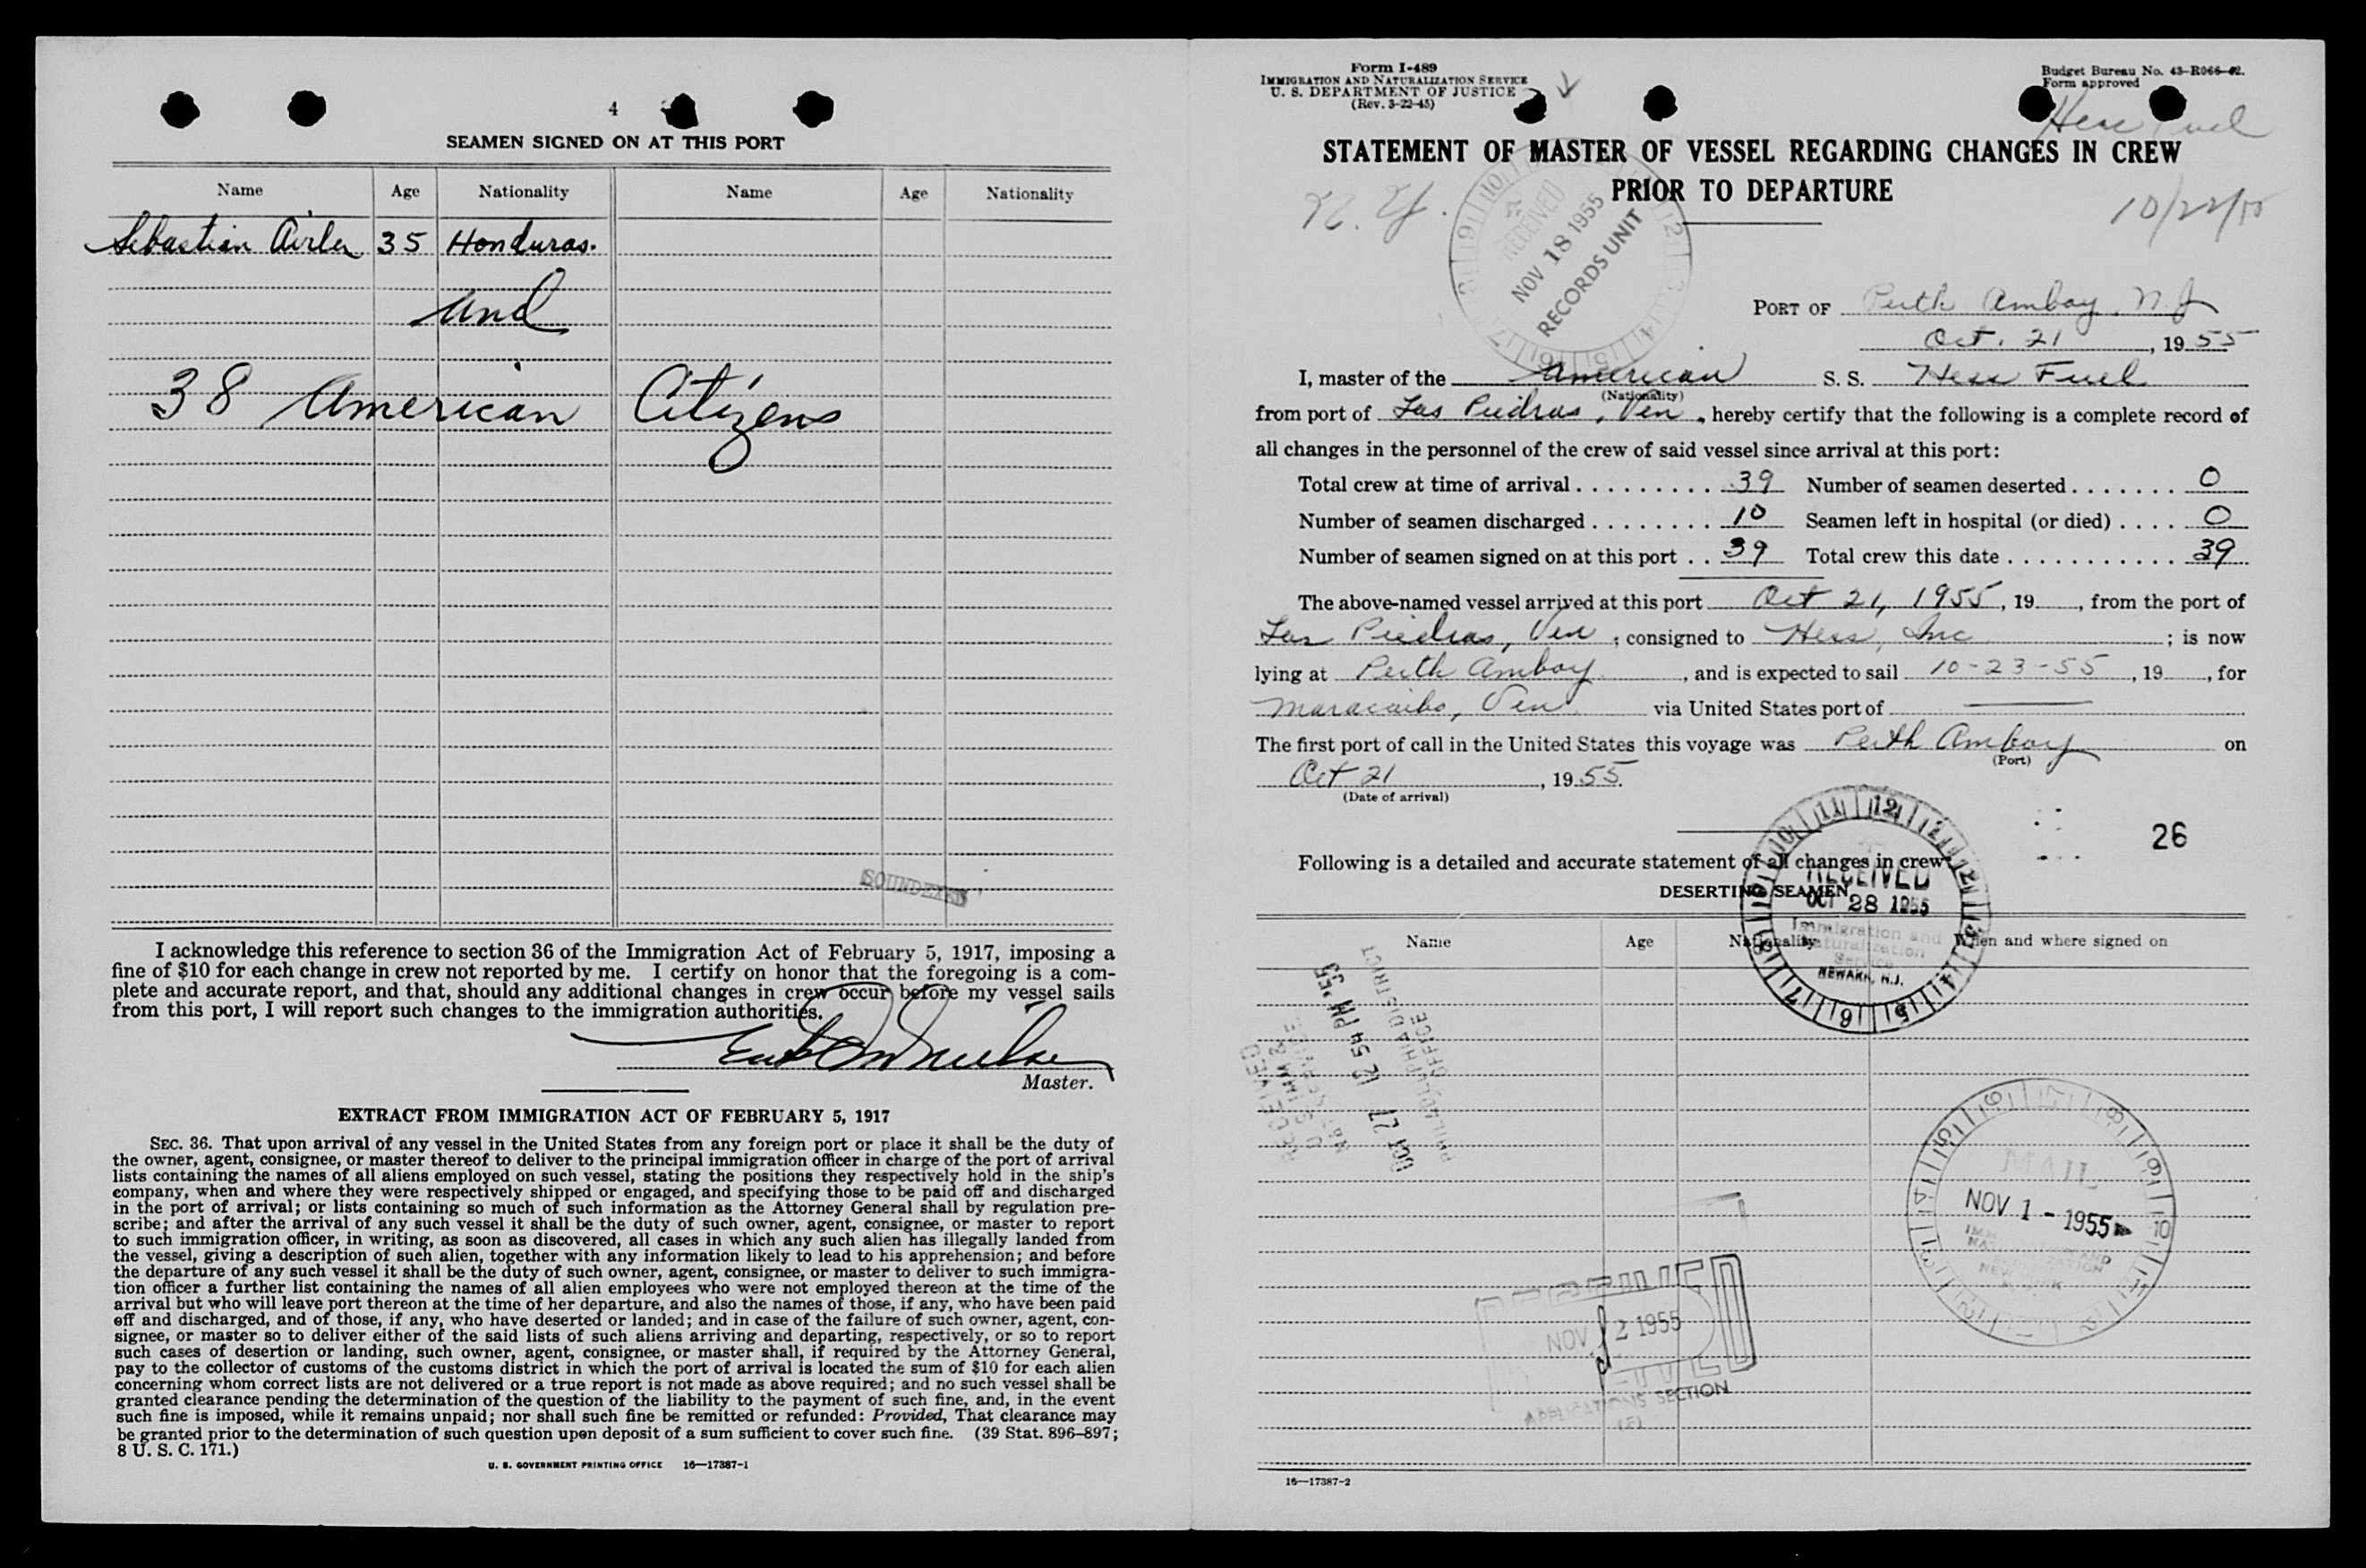 4
SEAMEN SIGNED ON AT THIS PORT
Name Age Nationality Name Age Nationality
Sebastian 35 Honduras.
and
38 American Citizens
SOUNDEXED
I acknowledge this reference to section 36 of the Immigration Act of February 5, 1917, imposing a
fine of $10 for each change in crew not reported by me. I certify on honor that the foregoing is a com-
plete and accurate report, and that, should any additional changes in crew occur before my vessel sails
from this port, I will report such changes to the immigration authorities.
Master.
EXTRACT FROM IMMIGRATION ACT OF FEBRUARY 5, 1917
SEC. 36. That upon arrival of any vessel in the United States from any foreign port or place it shall be the duty of
the owner, agent, consignee, or master thereof to deliver to the principal immigration officer in charge of the port of arrival
lists containing the names of all aliens employed on such vessel, stating the positions they respectively hold in the ship's
company, when and where they were respectively shipped or engaged, and specifying those to be paid off and discharged
in the port of arrival; or lists containing so much of such information as the Attorney General shall by regulation pre-
scribe; and after the arrival of any such vessel it shall be the duty of such owner, agent, consignee, or master to report
to such immigration officer, in writing, as soon as discovered, all cases in which any such alien has illegally landed from
the vessel, giving a description of such alien, together with any information likely to lead to his apprehension; and before
the departure of any such vessel it shall be the duty of such owner, agent, consignee, or master to deliver to such immigra-
tion officer a further list containing the names of all alien employees who were not employed thereon at the time of the
arrival but who will leave port thereon at the time of her departure, and also the names of those, if any, who have been paid
off and discharged, and of those, if any, who have deserted or landed; and in case of the failure of such owner, agent, con-
signee, or master so to deliver either of the said lists of such aliens arriving and departing, respectively, or so to report
such cases of desertion or landing, such owner, agent, consignee, or master shall, if required by the Attorney General,
pay to the collector of customs of the customs district in which the port of arrival is located the sum of $10 for each alien
concerning whom correct lists are not delivered or a true report is not made as above required; and no such vessel shall be
granted clearance pending the determination of the question of the liability to the payment of such fine, and, in the event
such fine is imposed, while it remains unpaid; nor shall such fine be remitted or refunded: Provided, That clearance may
be granted prior to the determination of such question upon deposit of a sum sufficient to cover such fine. (39 Stat. 896–897;
8 U. S. C. 171.)
U. S. GOVERNMENT PRINTING OFFICE 16—17387-1
Form I-489
IMMIGRATION AND NATURALIZATION SERVICE
U. S. DEPARTMENT OF JUSTICE
(Rev. 3-22-45)
Budget Bureau No. 43-R066-42.
Form approved
Hess Fuel
STATEMENT OF MASTER OF VESSEL REGARDING CHANGES IN CREW
PRIOR TO DEPARTURE
N. Y.
10/22/55
RECEIVED
NOV 18 1955
RECORDS UNIT
PORT OF Perth Amboy, N.J
Oct. 21, 1955
I, master of the American S. S. Hess Fuel
(Nationality)
from port of Las Piedras, Ven, hereby certify that the following is a complete record of
all changes in the personnel of the crew of said vessel since arrival at this port:
Total crew at time of arrival . . . . . . . . . . 39 Number of seamen deserted . . . . . . . 0
Number of seamen discharged . . . . . . . . 10 Seamen left in hospital (or died) . . . . 0
Number of seamen signed on at this port . . 39 Total crew this date . . . . . . . . . . . . 39
The above-named vessel arrived at this port Oct 21, 1955, 19 , from the port of
Las Piedras, Ven ; consigned to Hess, Inc ; is now
lying at Perth Amboy , and is expected to sail 10-23-55, 19 , for
Maracaibo, Ven via United States port of
The first port of call in the United States this voyage was Perth Amboy on
(Port)
Oct 21, 1955.
(Date of arrival)
26
Following is a detailed and accurate statement of all changes in crew:
DESERTING SEAMEN
RECEIVED
OCT 28 1955
Immigration and
Naturalization
Service
NEWARK, N.J.
Name Age Nationality When and where signed on
OCT 27 12 54 PM '55
PHILADELPHIA DISTRICT
OFFICE
MAIL
NOV 1 - 1955
NOV 2 1955
APPLICATIONS SECTION
16—17387-2